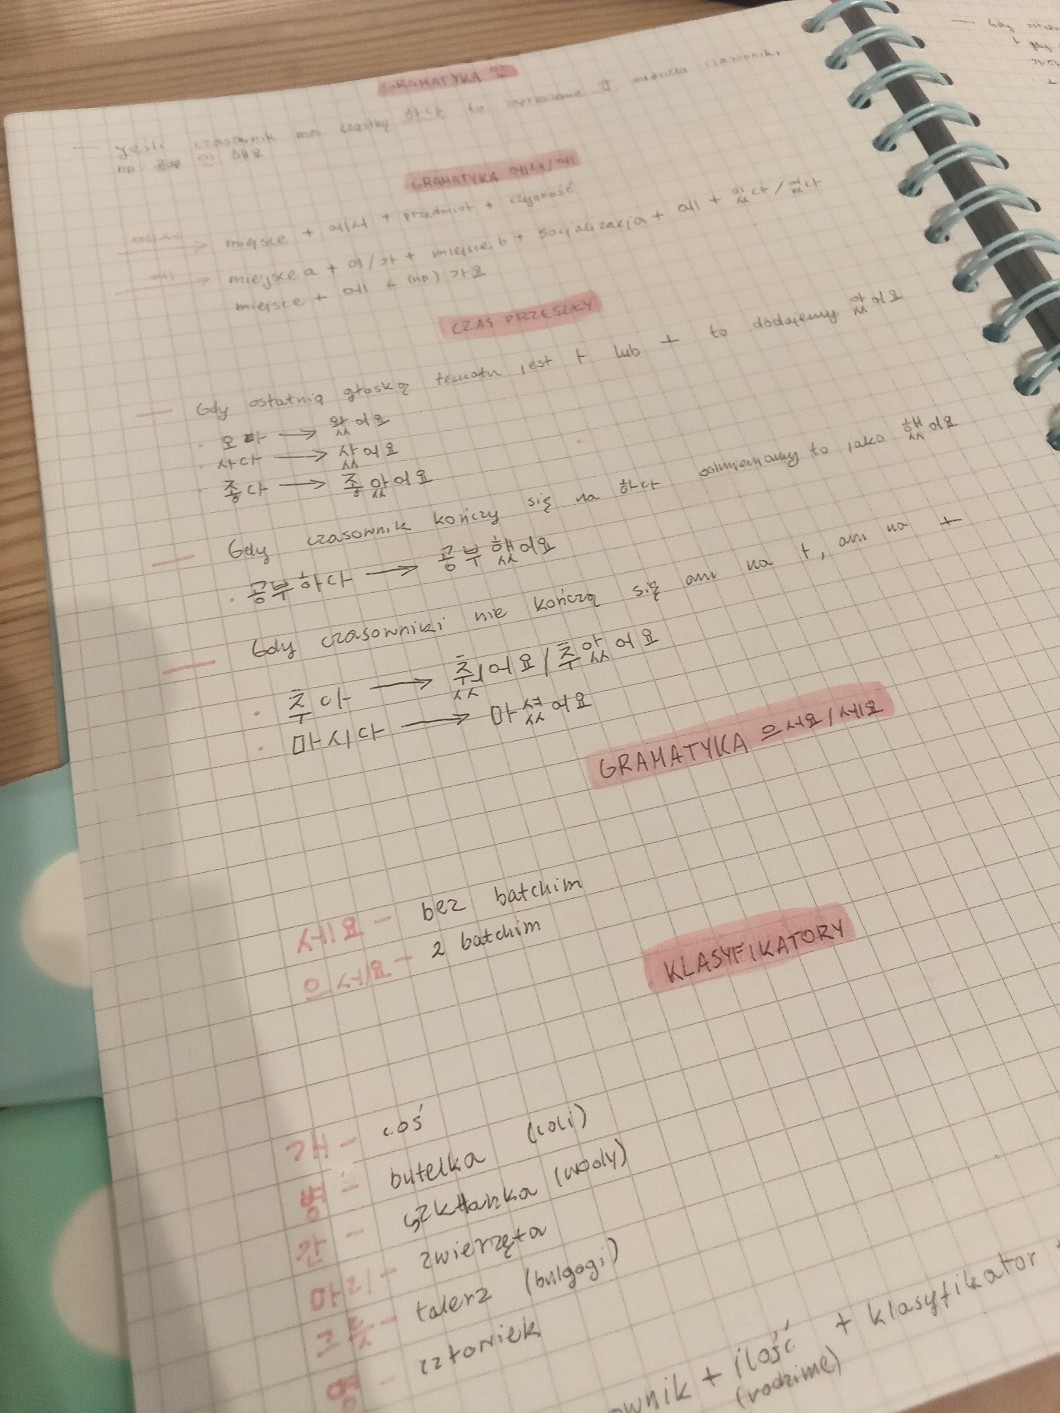 GRAMATYKA 안
— jeśli czasownik ma cząstkę 하다 to
np. 공부 안 해요
GRAMATYKA 에서/에
에서 → miejsce + 에서 + przedmiot + czynność
에 → miejsce a + 이/가 + miejsce b + socjalizacja + 에 + 있다/없다
miejsce + 에 + (np) 가요
CZAS PRZESZŁY
— Gdy ostatnią głoską tematu jest ㅏ lub ㅗ to dodajemy 았어요
· 오다 → 왔어요
· 사다 → 샀어요
· 좋다 → 좋았어요
— Gdy czasownik kończy się na 하다 odmieniamy to jako 했어요
· 공부하다 → 공부했어요
— Gdy czasowniki nie kończą się ani na ㅏ, ani na ㅗ
· 추다 → 췄어요/추았어요
· 마시다 → 마셨어요
GRAMATYKA 으세요/세요
세요 — bez batchim
으세요 — z batchim
KLASYFIKATORY
개 — coś
병 — butelka (coli)
잔 — szklanka (wody)
마리 — zwierzęta
그릇 — talerz (bulgogi)
명 — człowiek
+ ilość + klasyfikator +
(rodzime)